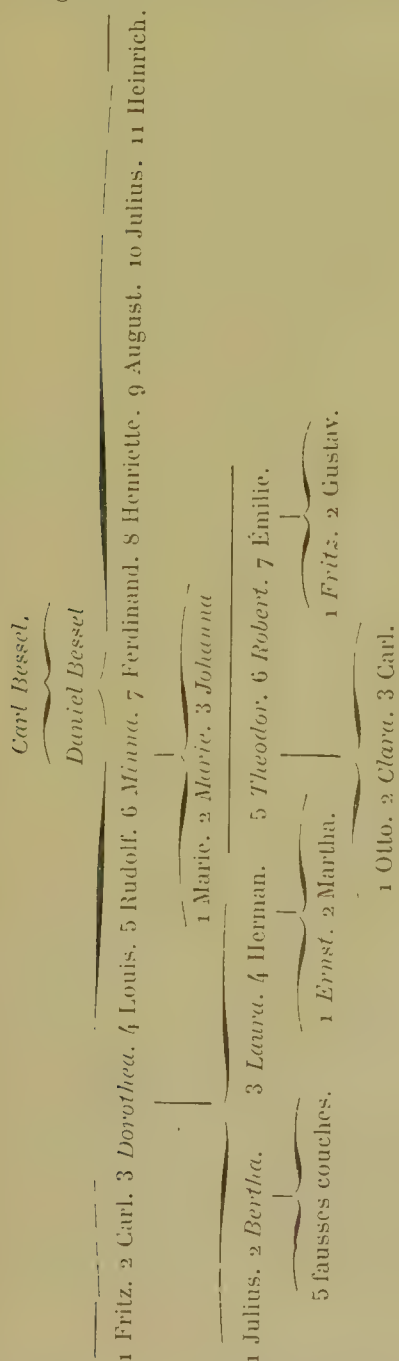 Carl Bessel.
Daniel Bessel
1 Fritz. 2 Carl. 3 Dorothea. 4 Louis. 5 Rudolf. 6 Minna. 7 Ferdinand. 8 Henriette. 9 August. 10 Julius. 11 Heinrich.
1 Marie. 2 Marie. 3 Johanna
1 Julius. 2 Bertha. 3 Laura. 4 Herman. 5 Theodor. 6 Robert. 7 Émilie.
5 fausses couches. 1 Ernst. 2 Martha. 1 Fritz. 2 Gustav.
1 Otto. 2 Clara. 3 Carl.